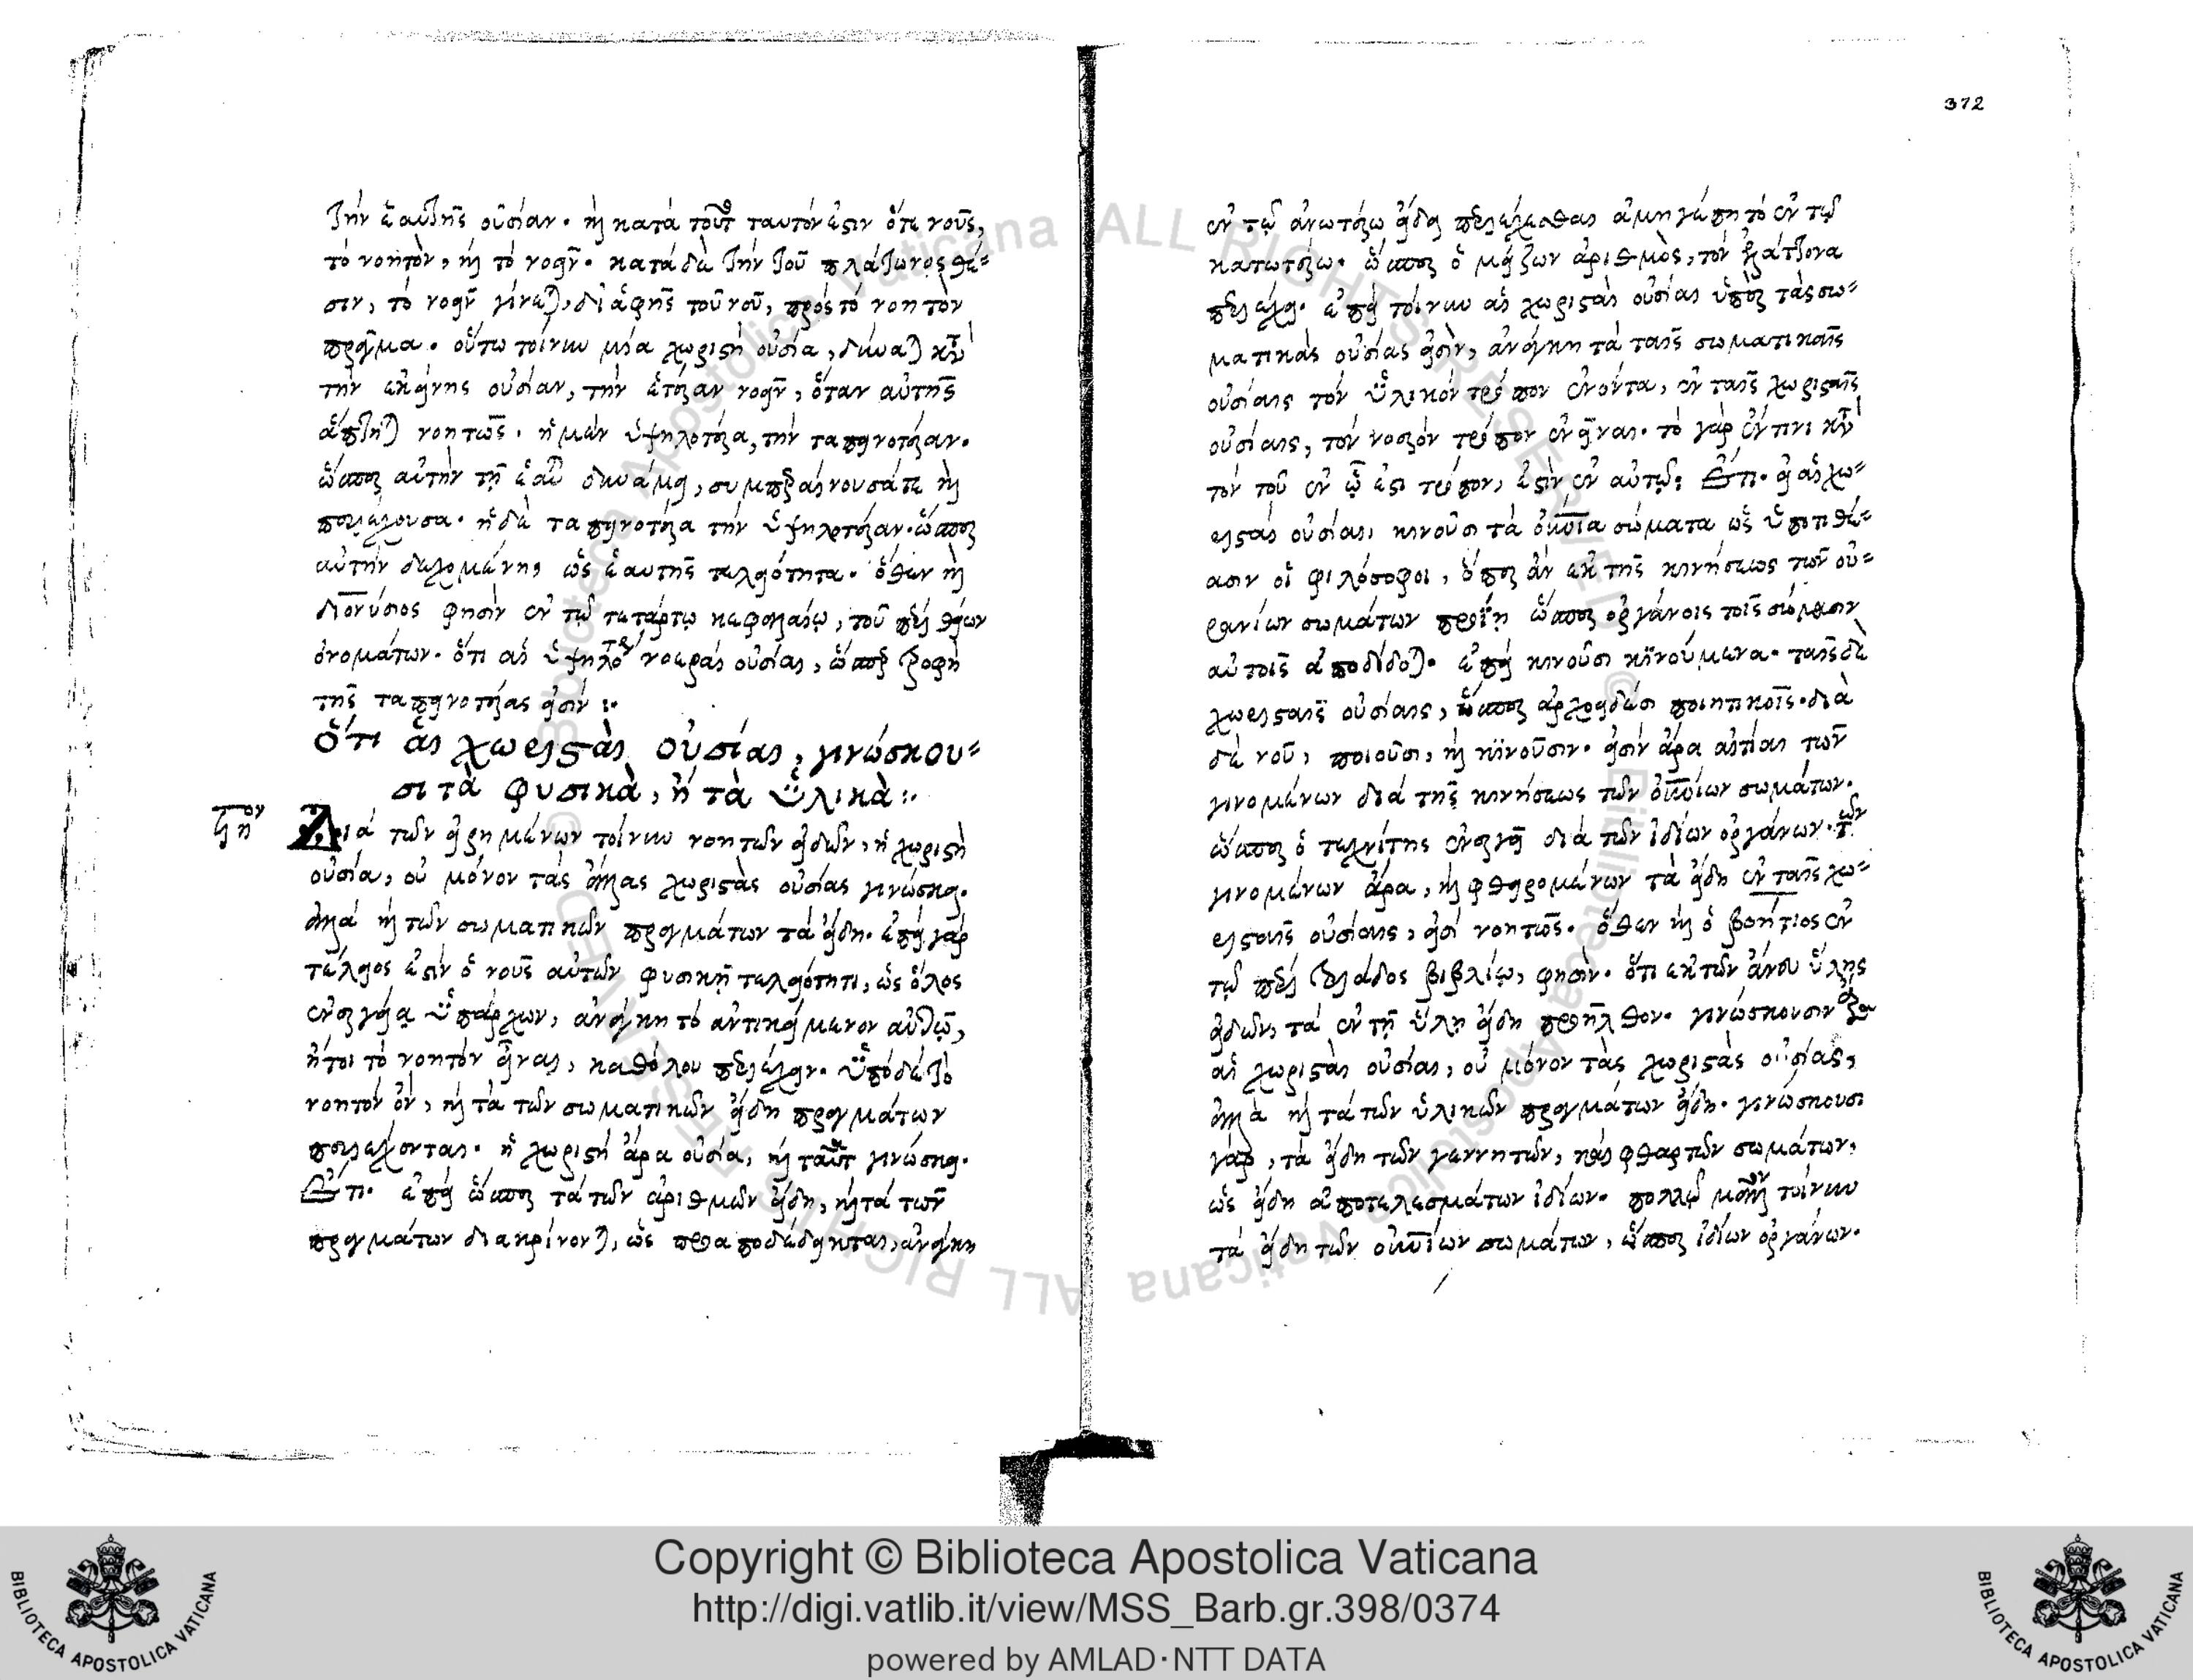 372
τὴν ἑαυτῆς οὐσίαν. καὶ κατὰ τοῦτο ταυτόν ἐστιν ὅτε νοῦς,
τὸ νοητὸν, καὶ τὸ νοεῖν. κατὰ δὲ τὴν τοῦ πλάτωνος θέ=
σιν, τὸ νοεῖν γίνεται, δι ἁφῆς τοῦ νοῦ, πρὸς τὸ νοητὸν
πρᾶγμα. οὕτω τοίνυν μία χωριστὴ οὐσία, δύναται κατὰ
τὴν ἐκείνης οὐσίαν, τὴν ἑτέραν νοεῖν, ὅταν αὐτῆς
ἅπτηται νοητῶς. ἡ μὲν ὑψηλοτέρα, τὴν ταπεινοτέραν.
ὥσπερ αὐτὴν τῇ ἑαυτῆς δυνάμει, συμπεραίνουσά τε καὶ
περιέχουσα. ἡ δὲ ταπεινοτέρα τὴν ὑψηλοτέραν. ὥσπερ
αὐτὴν δεχομένη, ὡς ἑαυτῆς τελειότητα. ὅθεν καὶ
διονύσιος φησὶν ἐν τῷ τετάρτῳ κεφαλαίῳ, τοῦ περὶ θείων
ὀνομάτων. ὅτι αἱ ὑψηλότεραι νοεραὶ οὐσίαι, ὥσπερ τροφὴ
τῆς ταπεινοτέρας εἰσίν :·
Ὅτι αἱ χωρισταὶ οὐσίαι, γινώσκου=
σι τὰ φυσικὰ, ἢ τὰ ὑλικὰ :·
Διά τῶν εἰρημένων τοίνυν νοητῶν εἰδῶν, ἡ χωριστὴ
οὐσία, οὐ μόνον τὰς ἄλλας χωριστὰς οὐσίας γινώσκει.
ἀλλὰ καὶ τῶν σωματικῶν πραγμάτων τὰ εἴδη. ἐπεὶ γὰρ
τέλειος ἐστὶν ὁ νοῦς αὐτῶν φυσικῇ τελειότητι, ὡς ὅλος
ἐνεργείᾳ ὑπάρχων, ἀνάγκη τὸ ἀντικείμενον αὐτῷ,
ἤτοι τὸ νοητὸν εἶναι, καθόλου περιέχειν. ὑπὸ δὲ τὸ
νοητὸν ὂν, καὶ τὰ τῶν σωματικῶν εἴδη πραγμάτων
περιέχονται. ἡ χωριστὴ ἄρα οὐσία, καὶ ταῦτα γινώσκει.
Ἔτι. ἐπεὶ ὥσπερ τὰ τῶν ἀριθμῶν εἴδη, καὶ τὰ τῶν
πραγμάτων διακρίνονται, ὡς προαποδέδεικται, ἀνάγκη
ἐν τῷ ἀνωτέρω εἴδει περιέχεσθαι ἀμηγέπη τὸ ἐν τῷ
κατωτέρω. ὥσπερ ὁ μείζων ἀριθμὸς, τὸν ἐλάττονα
περιέχει. ἐπεὶ τοίνυν αἱ χωρισταὶ οὐσίαι ὑπὲρ τὰς σω=
ματικὰς οὐσίας εἰσὶν, ἀνάγκη τὰ ταῖς σωματικαῖς
οὐσίαις τὸν ὑλικὸν τρόπον ἐνόντα, ἐν ταῖς χωρισταῖς
οὐσίαις, τὸν νοερὸν τρόπον ἐνεῖναι. τὸ γὰρ ἔν τινι κατὰ
τὸν τοῦ ἐν ᾧ ἐστι τρόπον, ἐστὶν ἐν αὐτῷ: Ἔτι. εἰ αἱ χω=
ρισταὶ οὐσίαι, κινοῦσι τὰ οὐράνια σώματα ὡς ὑποτιθέ=
ασιν οἱ φιλόσοφοι, ὅπερ ἂν ἐκ τῆς κινήσεως τῶν οὐ=
ρανίων σωμάτων προΐῃ ὥσπερ ὀργάνοις τοῖς σώμασιν
αὐτοῖς ἀποδίδοται. ἐπεὶ κινοῦσι κινούμενα. ταῖς δὲ
χωρισταῖς οὐσίαις, ὥσπερ ἀρχοειδέσι ποιητικοῖς. διὰ
δὲ νοῦ, ποιοῦσι, καὶ κινοῦσιν. εἰσὶν ἄρα αἰτίαι τῶν
γινομένων διὰ τῆς κινήσεως τῶν οὐρανίων σωμάτων.
ὥσπερ ὁ τεχνίτης ἐνεργεῖ διὰ τῶν ἰδίων ὀργάνων. τῶν
γινομένων ἄρα, καὶ φθειρομένων τὰ εἴδη ἐν ταῖς χω=
ρισταῖς οὐσίαις, εἰσὶ νοητῶς. ὅθεν καὶ ὁ βοήτιος ἐν
τῷ περὶ τριάδος βιβλίῳ, φησὶν. ὅτι ἐκ τῶν ἄνευ ὕλης
εἰδῶν, τὰ ἐν τῇ ὕλῃ εἴδη προῆλθον. γινώσκουσιν ἄρα
αἱ χωρισταὶ οὐσίαι, οὐ μόνον τὰς χωριστὰς οὐσίας,
ἀλλὰ καὶ τὰ τῶν ὑλικῶν πραγμάτων εἴδη. γινώσκουσι
γὰρ, τὰ εἴδη τῶν γεννητῶν, καὶ φθαρτῶν σωμάτων,
ὡς εἴδη ἀποτελεσμάτων ἰδίων. πολλῷ μᾶλλον τοίνυν
τὰ εἴδη τῶν οὐρανίων σωμάτων, ὥσπερ ἰδίων ὀργάνων.
Copyright © Biblioteca Apostolica Vaticana
http://digi.vatlib.it/view/MSS_Barb.gr.398/0374
powered by AMLAD·NTT DATA
BIBLIOTECA APOSTOLICA VATICANA
BIBLIOTECA APOSTOLICA VATICANA